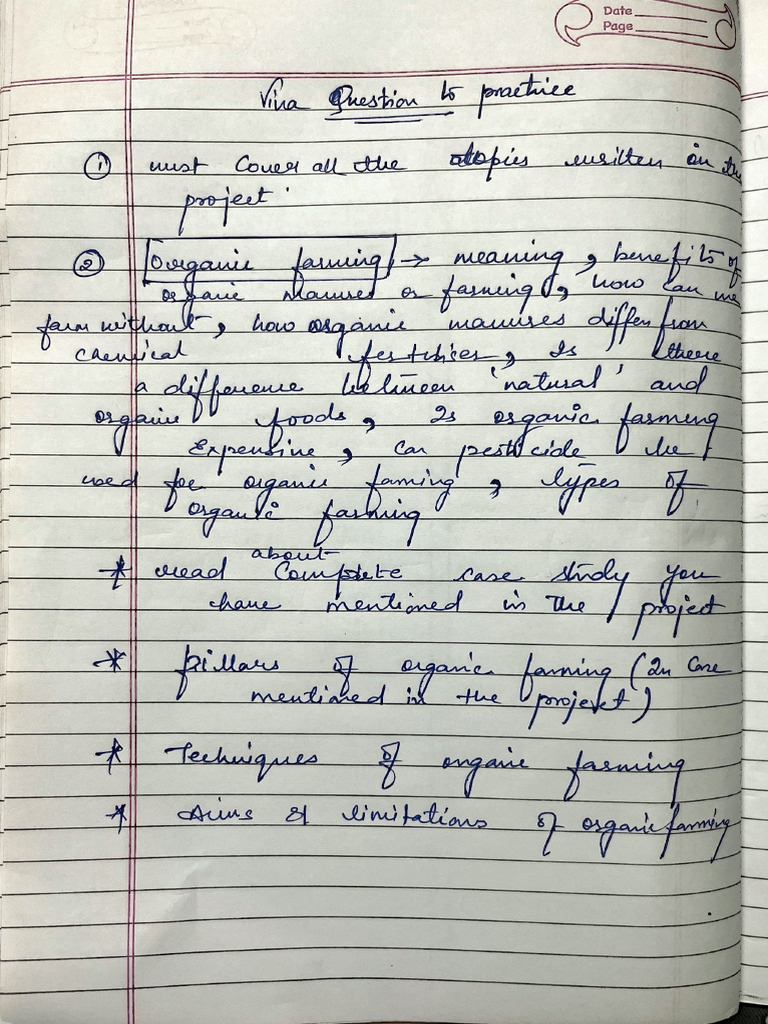 Date
Page
Viva Question to practice
1 must Cover all the topics written in the
project
2 Organic farming → meaning, benefits of
organic manures or farming, how can we
farm without, how organic manures differ from
chemical fertilizes, Is there
a difference between 'natural' and
organic foods, Is organic farming
Expensive, can pesticide be
used for organic faming, types of
organic farming
about
* read Complete case study you
have mentioned in the project
* pillars of organic farming (In case
mentioned in the project)
* Techniques of organic farming
* Aims & limitations of organic farming